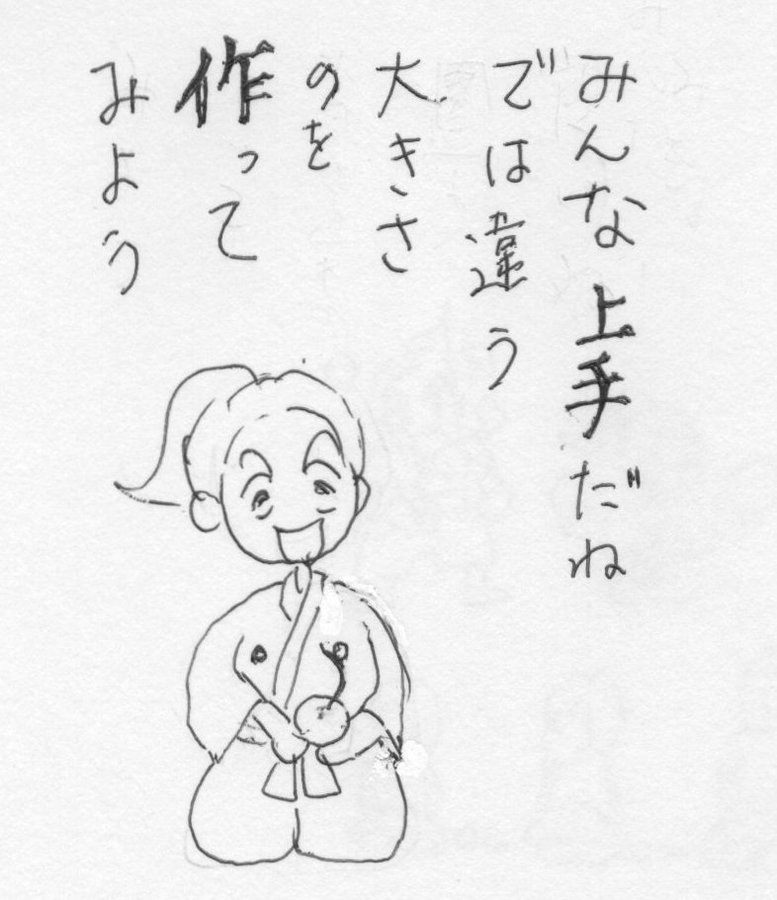 みんな上手だね
では違う
大きさ
のを
作って
みよう